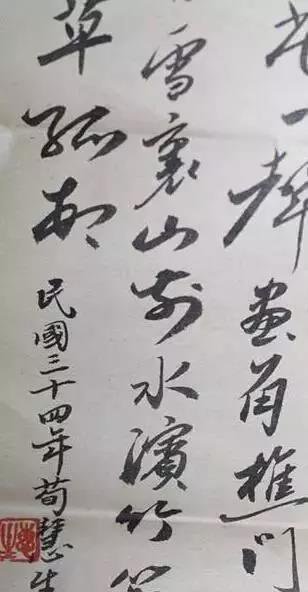 一聲畫角樵門
雪裏山前水濱竹
草孤村
民國三十四年荀慧生